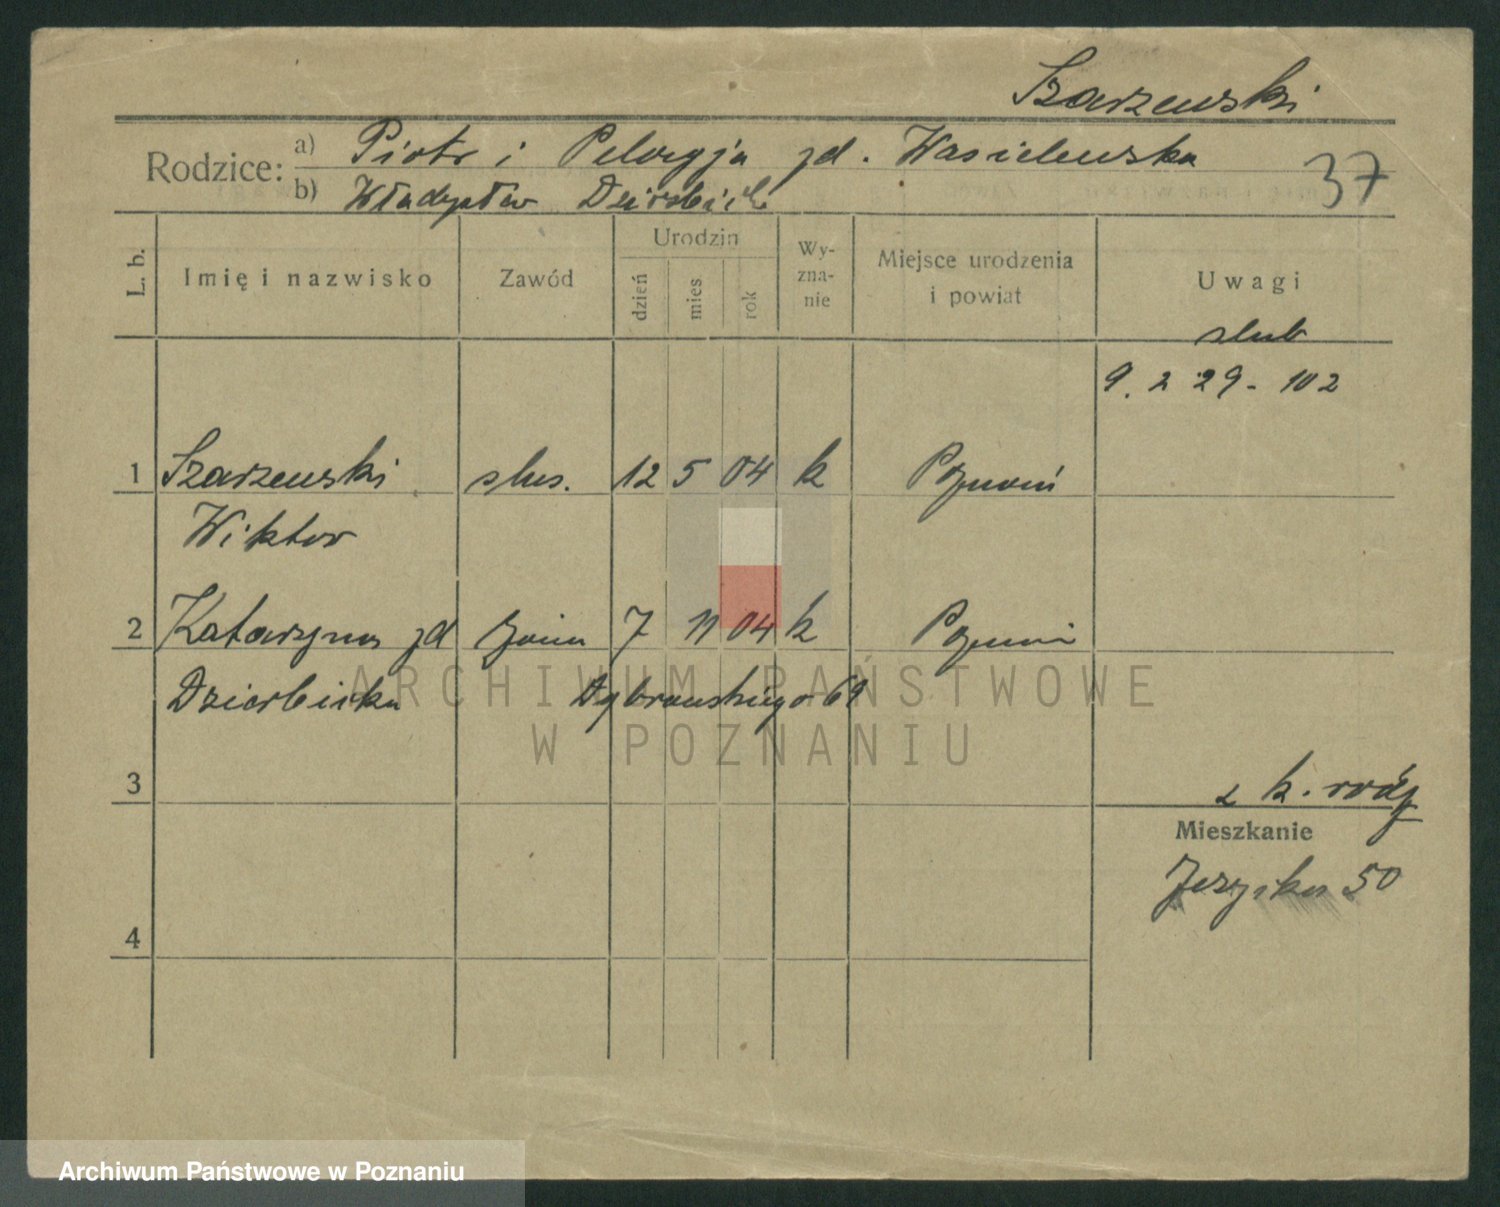 Szarzewski
Rodzice: a) Piotr i Pelagja zd. Wasielewska
37
b) Władysław Dzierbicki
L. b. Imię i nazwisko Zawód Urodzin dzień mies rok Wy-zna-nie Miejsce urodzenia i powiat Uwagi
slub
9. 2 29 - 102
1 Szarzewski slus. 12 5 04 k Poznań
Wiktor
2 Katarzyna zd 7 11 04 k Poznań
Dzierbicka Dąbrowskiego 69
ARCHIWUM PAŃSTWOWE
W POZNANIU
3
z k. rodz
Mieszkanie
50
4
Archiwum Państwowe w Poznaniu